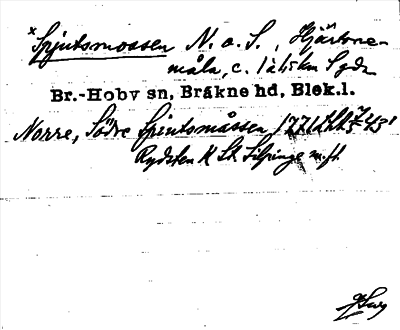 × Spjutsmossen N. o. S., Hjärtone-
måla, c. 1 à 1,5 km S gdn
Br.-Hoby sn, Bräkne hd, Blek.l.
Norre, Södre Spjutsmåssen
Rydsten K St. Silpinge m.fl.